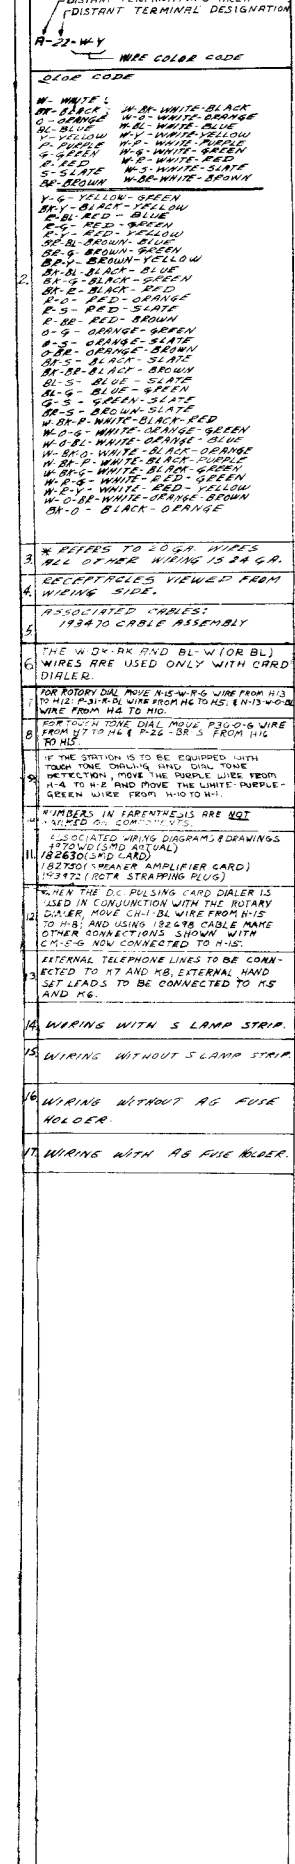 DISTANT TERMINAL DESIGNATION
A-22-W-Y
WIRE COLOR CODE
COLOR CODE
2.
W- WHITE
BK-BLACK W-BK-WHITE-BLACK
O-ORANGE W-O-WHITE-ORANGE
BL-BLUE W-BL-WHITE-BLUE
Y-YELLOW W-Y-WHITE-YELLOW
P-PURPLE W-P-WHITE-PURPLE
G-GREEN W-G-WHITE-GREEN
R-RED W-R-WHITE-RED
S-SLATE W-S-WHITE-SLATE
BR-BROWN W-BR-WHITE-BROWN
Y-G-YELLOW-GREEN
BK-Y-BLACK-YELLOW
R-BL-RED-BLUE
R-G-RED-GREEN
R-Y-RED-YELLOW
BR-BL-BROWN-BLUE
BR-G-BROWN-GREEN
BR-Y-BROWN-YELLOW
BK-BL-BLACK-BLUE
BK-G-BLACK-GREEN
BK-R-BLACK-RED
R-O-RED-ORANGE
R-S-RED-SLATE
R-BR-RED-BROWN
O-G-ORANGE-GREEN
O-S-ORANGE-SLATE
O-BR-ORANGE-BROWN
BK-S-BLACK-SLATE
BK-BR-BLACK-BROWN
BL-S-BLUE-SLATE
BL-G-BLUE-GREEN
G-S-GREEN-SLATE
BR-S-BROWN-SLATE
W-BK-R-WHITE-BLACK-RED
W-O-G-WHITE-ORANGE-GREEN
W-O-BL-WHITE-ORANGE-BLUE
W-BK-O-WHITE-BLACK-ORANGE
W-BK-P-WHITE-BLACK-PURPLE
W-BK-G-WHITE-BLACK-GREEN
W-R-G-WHITE-RED-GREEN
W-R-Y-WHITE-RED-YELLOW
W-O-BR-WHITE-ORANGE-BROWN
BK-O-BLACK-ORANGE
3. * REFERS TO 20 GA. WIRES
ALL OTHER WIRING IS 24 GA.
4. RECEPTACLES VIEWED FROM
WIRING SIDE.
5. ASSOCIATED CABLES:
193470 CABLE ASSEMBLY
6. THE AND BL-W (OR BL)
WIRES ARE USED ONLY WITH CARD
DIALER.
7 FOR ROTARY DIAL MOVE N-15-W-R-G WIRE FROM H13
TO H12; P-31-R-BL WIRE FROM H6 TO H5; & N-13-W-O-BL
WIRE FROM H4 TO H10.
8 FOR TOUCH TONE DIAL MOVE P36-O-G WIRE
FROM H7 TO H6 & P-26-BR-S FROM H16
TO H15.
9. IF THE STATION IS TO BE EQUIPPED WITH
TOUCH TONE DIALING AND DIAL TONE
DETECTION, MOVE THE PURPLE WIRE FROM
H-4 TO H-2 AND MOVE THE WHITE-PURPLE-
GREEN WIRE FROM H-10 TO H-1.
NUMBERS IN PARENTHESIS ARE NOT
MARKED ON COMPONENTS.
11. ASSOCIATED WIRING DIAGRAMS & DRAWINGS
(SMD ACTUAL)
182630(SMD CARD)
182750(SPEAKER AMPLIFIER CARD)
193972 (RCTR STRAPPING PLUG)
12. WHEN THE D.C. PULSING CARD DIALER IS
USED IN CONJUNCTION WITH THE ROTARY
DIALER, MOVE CH-1-BL WIRE FROM H-15
TO H-8; AND USING 182698 CABLE MAKE
OTHER CONNECTIONS SHOWN WITH
CM-5-G NOW CONNECTED TO H-15.
13. EXTERNAL TELEPHONE LINES TO BE CONN-
ECTED TO K7 AND K8, EXTERNAL HAND
SET LEADS TO BE CONNECTED TO K5
AND K6.
14. WIRING WITH S LAMP STRIP.
15. WIRING WITHOUT S LAMP STRIP.
16. WIRING WITHOUT AG FUSE
HOLDER.
17. WIRING WITH AG FUSE HOLDER.